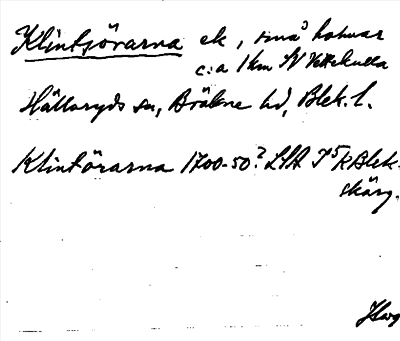 Klintsörarna ek, små holmar
c:a 1 km N Vettekulla
Hällaryds sn, Bräkne hd, Blek. l.
Klintörarna 1700-50? LSA I5 k Blek.
skärg.